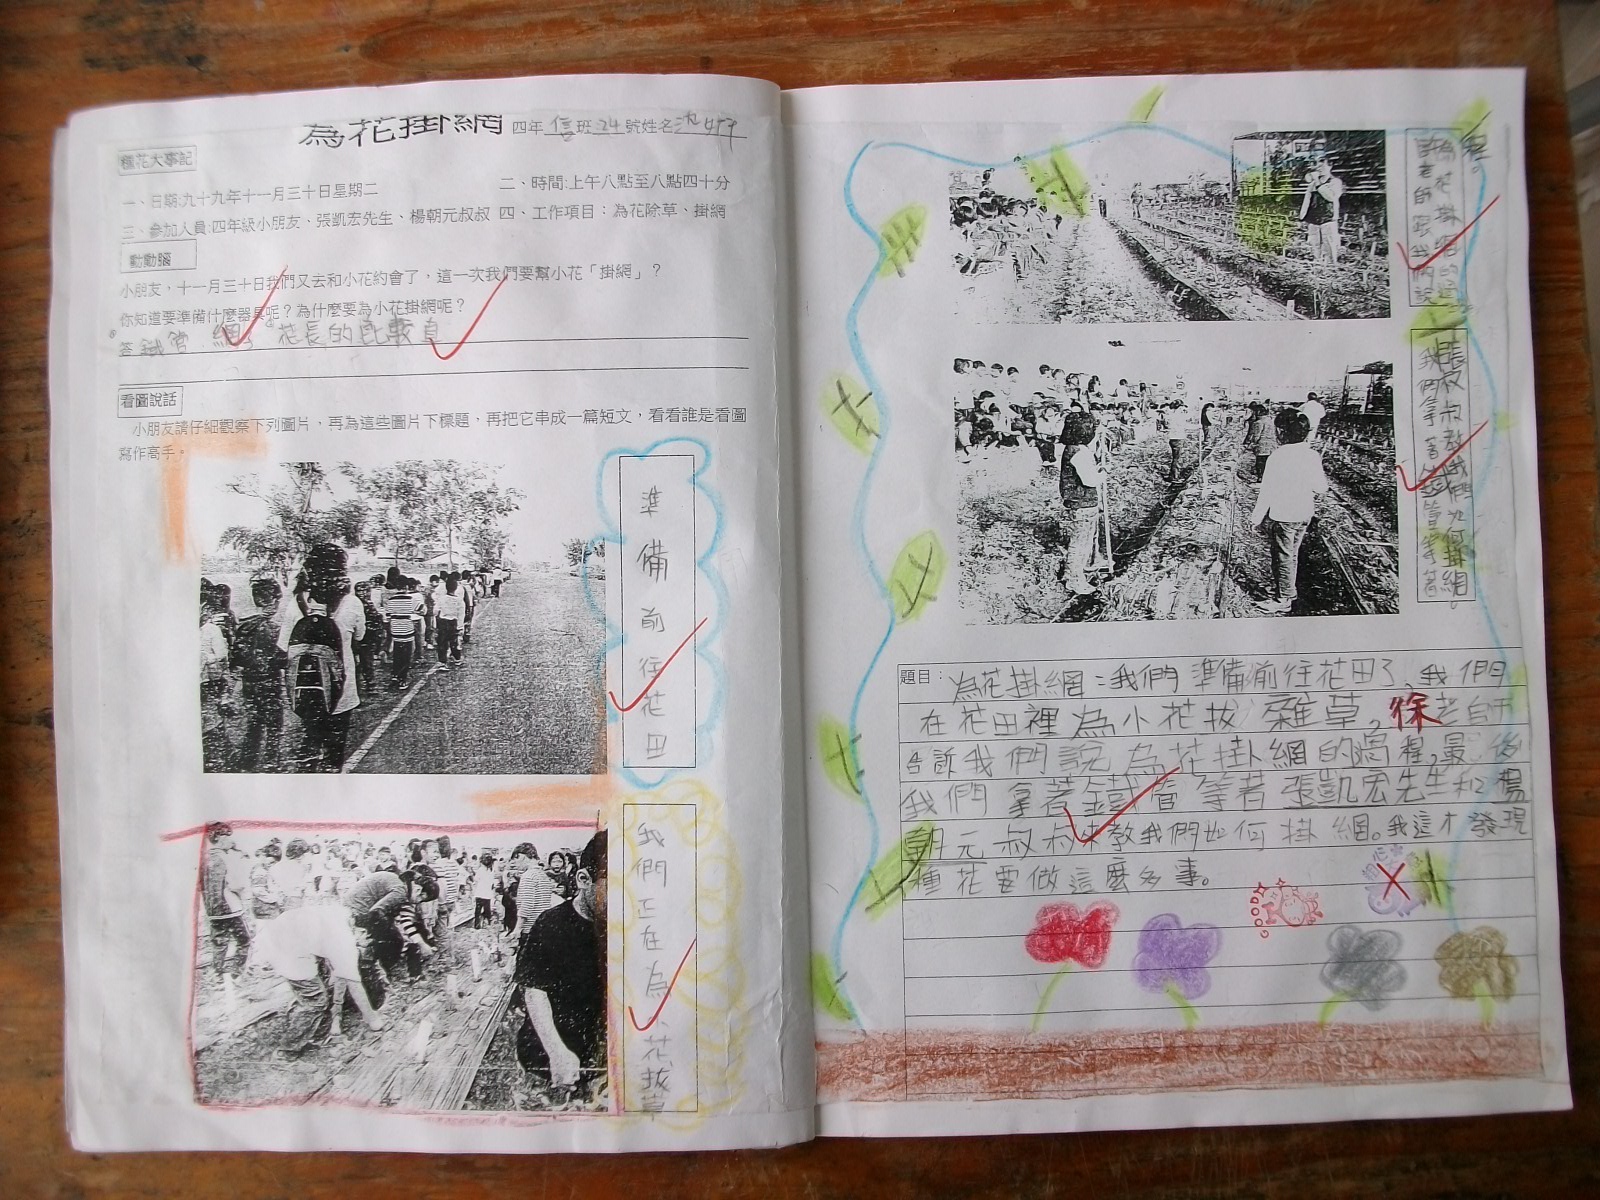 為花掛網 四年信班24號姓名沈
種花大事記
一、日期:九十九年十一月三十日星期二
二、時間:上午八點至八點四十分
三、參加人員:四年級小朋友、張凱宏先生、楊朝元叔叔 四、工作項目：為花除草、掛網
動動腦
小朋友，十一月三十日我們又去和小花約會了，這一次我們要幫小花「掛網」？
你知道要準備什麼器具呢？為什麼要為小花掛網呢？
答 鐵管 網。花長的比較直
看圖說話
小朋友請仔細觀察下列圖片，再為這些圖片下標題，再把它串成一篇短文，看看誰是看圖
寫作高手。
準備前往花田
我們正在為花拔草
徐老師跟我們說
為花掛網的過
程。
張叔叔教我們如何掛網。
我們拿著鐵管等著
題目：為花掛網：我們準備前往花田了、我們
在花田裡為小花拔雜草，徐老師
告訴我們說為花掛網的過程，最後
我們拿著鐵管等著張凱宏先生和楊
朝元叔叔來教我們如何掛網。我這才發現
種花要做這麼多事。
GOOD